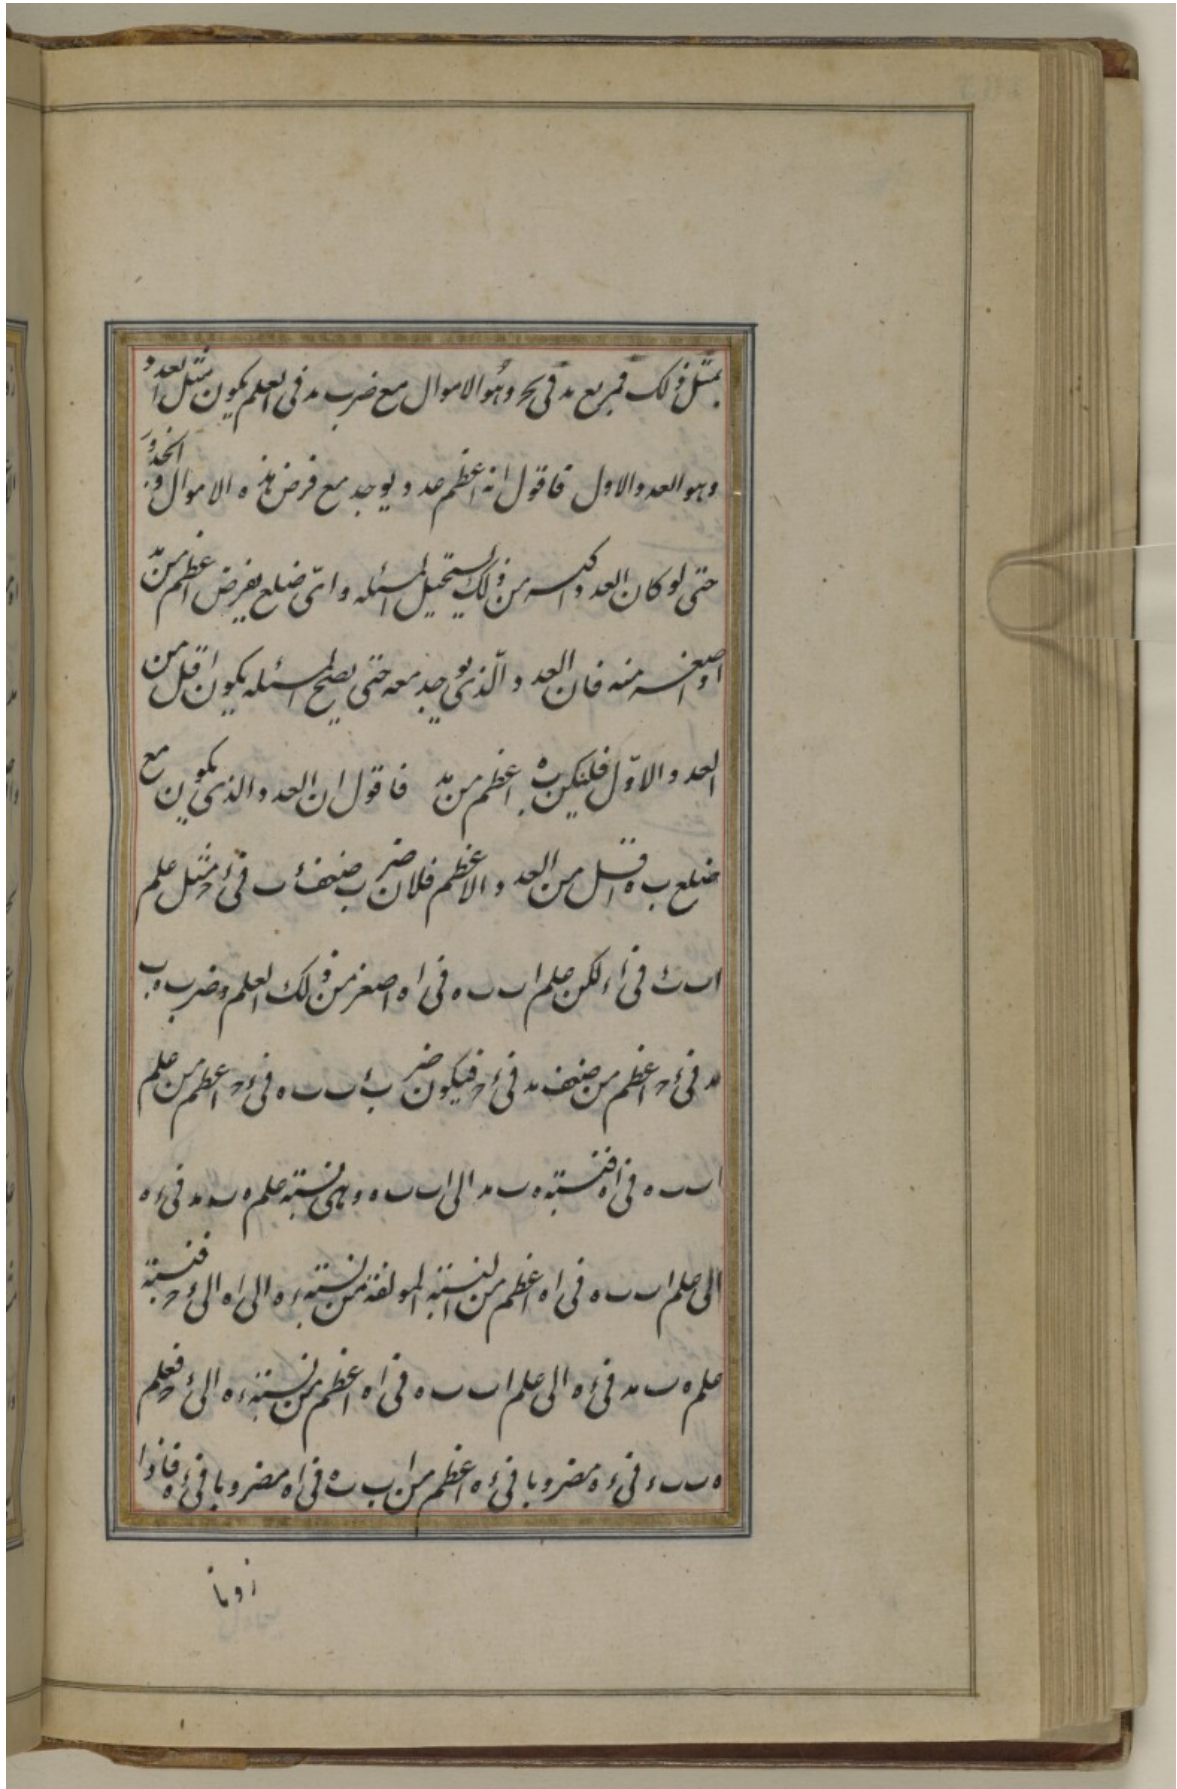 بمثل ذلك فمربع مد فی ىح وهو الاموال مع ضرب مد فی العلم يكون مثل العدد
وهو العدد الاول فاقول انه اعظم عدد يوجد مع فرض هذه الاموال و الجذور
حتى لو كان العدد اكبر من ذلك يستحيل المسئله و اىّ ضلع يفرض اعظم من مد
او اصغر منه فان العدد الّذى يوجد معه حتى يصح المسئله يكون اقل من
العدد الاوّل فليكن به اعظم من مد فاقول ان العدد الذى يكون مع
ضلع ب ه اقل من العدد الاعظم فلان ضرب ضعف فی مثل علم
فی لكن علم ا ب ب ه فی ا ه اصغر من ذلك العلم و ضرب ه ب
مد فی اعظم من ضعف مد فی فيكون ضرب ب ب ه فی اعظم من علم
ا ب ب ه فی ا ه فنسبة ه ب مد الى ا ب ب ه وهى نسبة علم ه ب مد فی ء ه
الى علم ا ب ب ه فی ا ه اعظم من النسبة المولفة من نسبة ء ه الى ا ه الى فنسبة
علم ه ب مد فی ء ه الى علم ا ب ب ه فی ا ه اعظم من نسبة ء ه الى فعلم
ه ب ب ء فی ء ه مضروبا فی ء ه اعظم من ا ب ب ه فی ا ه مضروبا فی فاذا
زدنا